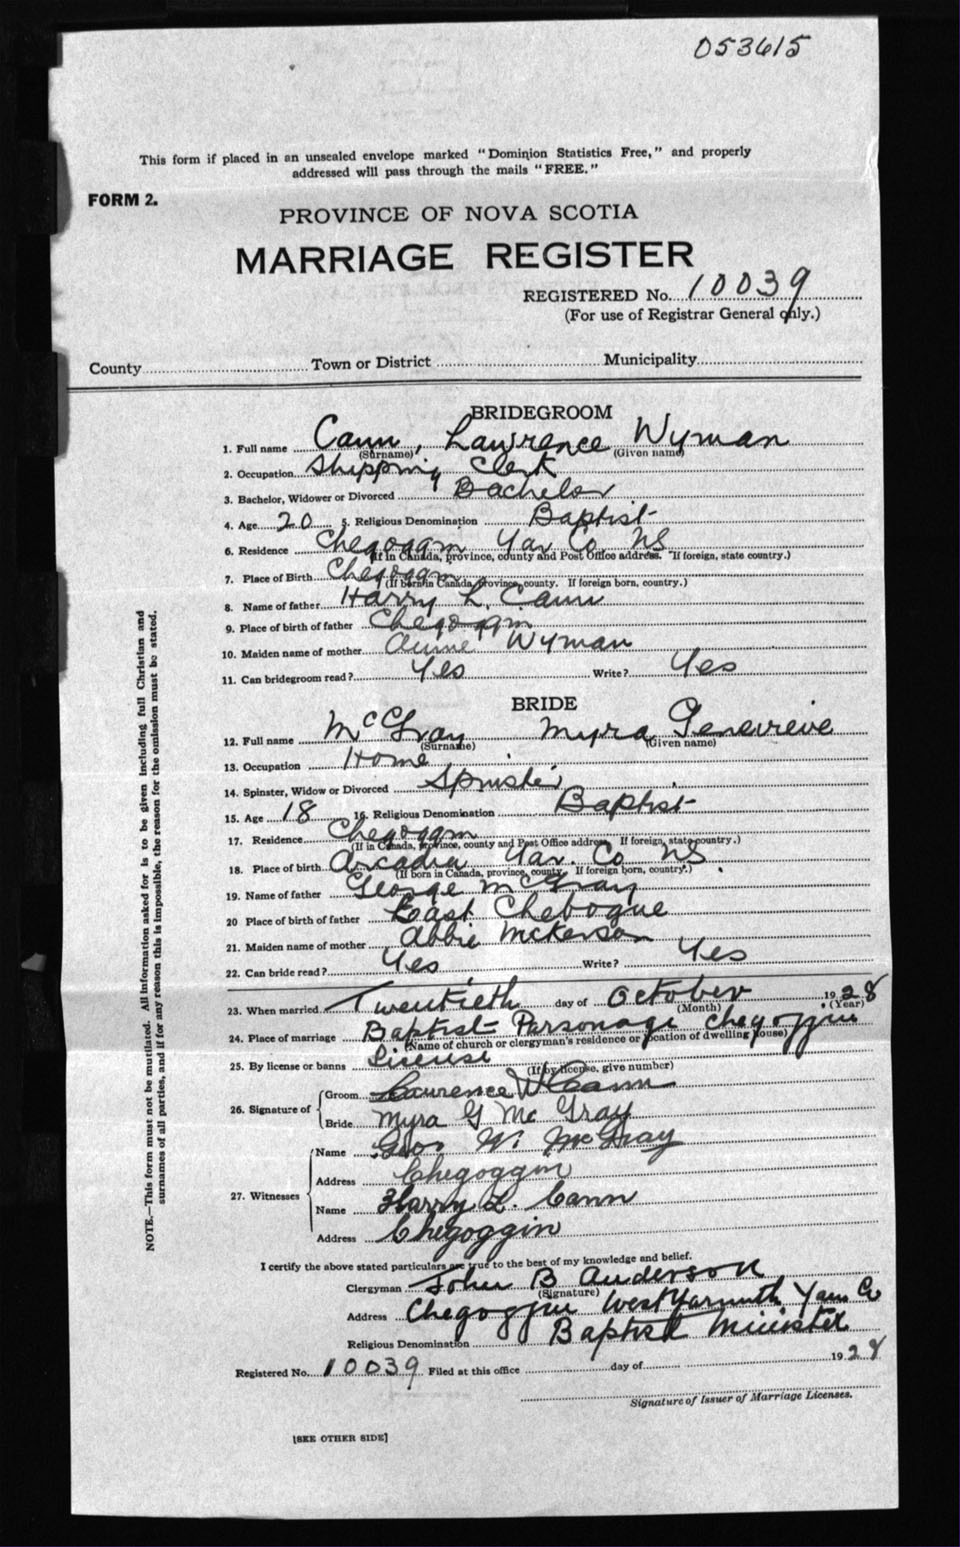 053615
This form if placed in an unsealed envelope marked "Dominion Statistics Free," and properly
addressed will pass through the mails "FREE."
FORM 2.
PROVINCE OF NOVA SCOTIA
MARRIAGE REGISTER
REGISTERED No. 10039
(For use of Registrar General only.)
County Town or District Municipality
BRIDEGROOM
1. Full name Cann, Lawrence Wyman
(Surname) (Given name)
2. Occupation Shipping Clerk
3. Bachelor, Widower or Divorced Bachelor
4. Age 20 5. Religious Denomination Baptist
6. Residence Chegoggm Yar Co. NS
(If in Canada, province, county and Post Office address. If foreign, state country.)
7. Place of Birth Chegoggm
(If born in Canada, province, county. If foreign born, country.)
8. Name of father Harry L. Cann
9. Place of birth of father Chegoggm
10. Maiden name of mother Annie Wyman
11. Can bridegroom read? Yes Write? Yes
BRIDE
12. Full name McGray Myra Genevieve
(Surname) (Given name)
13. Occupation Home
14. Spinster, Widow or Divorced Spinster
15. Age 18 16. Religious Denomination Baptist
17. Residence Chegoggm
(If in Canada, province, county and Post Office address. If foreign, state country.)
18. Place of birth Arcadia Yar. Co NS
(If born in Canada, province, county. If foreign born, country.)
19. Name of father George McGray
20 Place of birth of father East Chebogue
21. Maiden name of mother Abbie McKerson
22. Can bride read? Yes Write? Yes
23. When married Twentieth day of October 1928
(Month) (Year)
24. Place of marriage Baptist Parsonage Chegoggin
(Name of church or clergyman's residence or location of dwelling house)
25. By license or banns License
(If by license, give number)
26. Signature of Groom Lawrence W Cann
Bride Myra G McGray
27. Witnesses Name Geo. W. McGray
Address Chegoggin
Name Harry L. Cann
Address Chegoggin
I certify the above stated particulars are true to the best of my knowledge and belief.
Clergyman John B Anderson
(Signature)
Address Chegoggin West Yarmouth Yarm Co
Religious Denomination Baptist Minister
Registered No. 10039 Filed at this office day of 1928
Signature of Issuer of Marriage Licenses.
[SEE OTHER SIDE]
NOTE.—This form must not be mutilated. All information asked for is to be given including full Christian and
surnames of all parties, and if for any reason this is impossible, the reason for the omission must be stated.